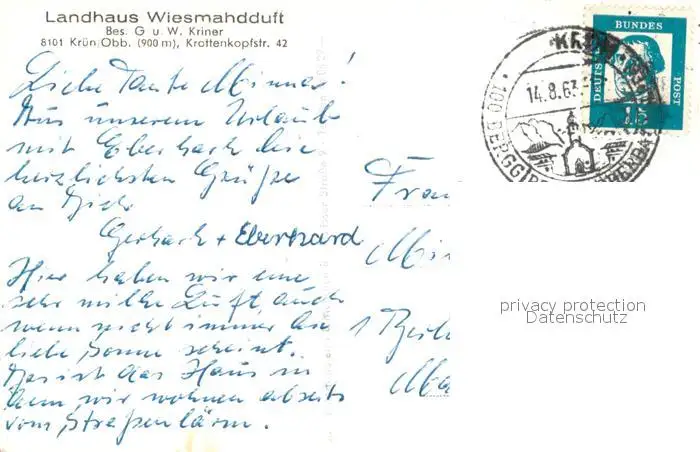 Landhaus Wiesmahdduft
Bes. G u. W. Kriner
8101 Krün/Obb. (900 m), Krottenkopfstr. 42
Liebe Tante Minna!
Aus unserem Urlaub
mit Eberhard die
herzlichsten Grüße
an Dich
+ Eberhard
Hier haben wir eine
sehr milde Luft, auch
wenn nicht immer die
liebe Sonne scheint.
Das ist das Haus in
dem wir wohnen abseits
vom Straßenlärm.
DEUTSCHE
BUNDES
POST
15
14.8.63
Frau
1 Berli
privacy protection
Datenschutz